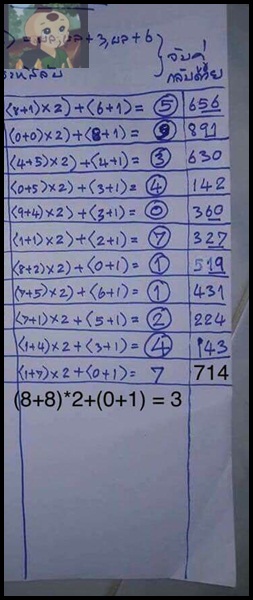 ) = ผล, ผล+3, ผล+6
จับคู่
กลับด้วย
(8+1)×2)+(6+1)= 5 656
(0+0)×2)+(8+1)= 9 891
(4+5)×2)+(4+1)= 3 630
(0+5)×2)+(3+1)= 4 142
(9+4)×2)+(3+1)= 0 360
(1+1)×2)+(2+1)= 7 327
(8+2)×2)+(0+1)= 1 519
(7+5)×2)+(6+1)= 1 431
(7+1)×2+(5+1)= 2 224
(1+4)×2+(3+1)= 4 143
(1+7)×2+(0+1)= 7 714
(8+8)*2+(0+1) = 3